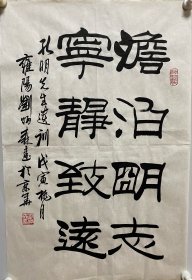 澹泊朙志
寧靜致遠
孔明先生遺訓 戊寅桃月
雍陽劉炳森書於京華